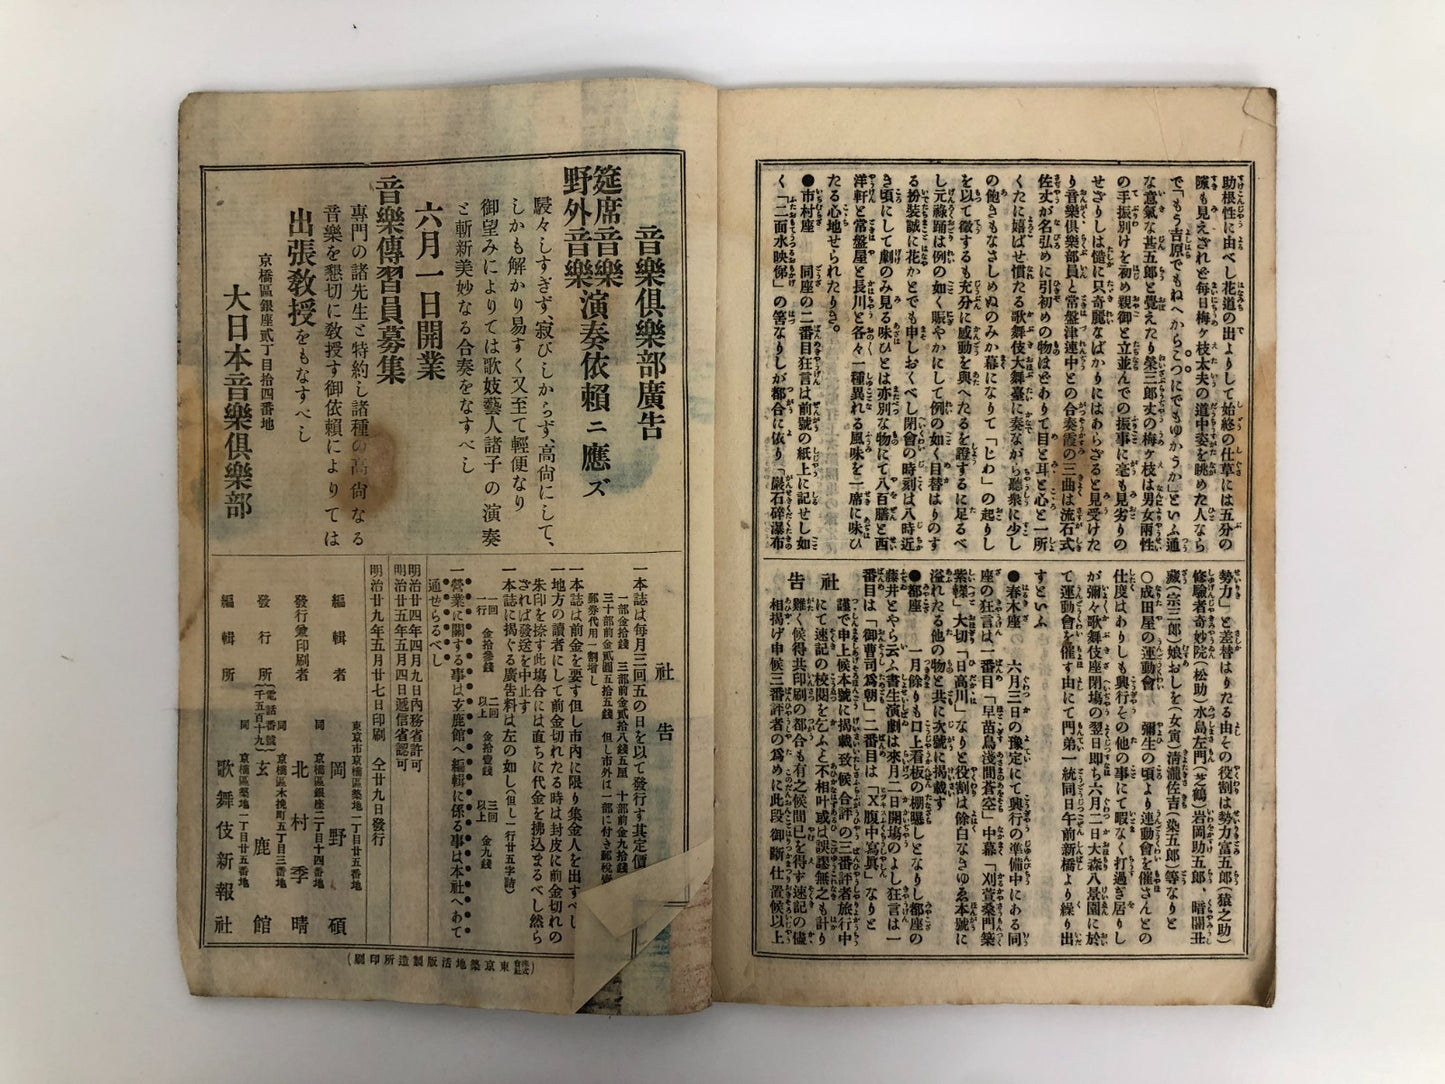 助根性に由べし花道の出よりして始終の仕草には五分の
隙も見えざれど毎日梅ヶ枝太夫の道中姿を眺めた人なら
で「もう吉原でもねへからこつにでもゆかうか」といふ通
な意氣な甚五郎と覺えたり榮三郎丈の梅ヶ枝は男女兩性
の手振別けを初め親御と立並んでの振事に毫も見劣りの
せざりしは慥に只奇麗なばかりにはあらざると見受けた
り音樂倶樂部員と常盤津連中との合奏霞の三曲は流石式
佐丈が名弘めに引初めの物ほどありて目と耳と心と一所
くたに嬉ばせ慣たる歌舞伎大舞臺に奏ながら聽衆に少し
の倦きもなさしめぬのみか幕になりて「とわ」の起りし
を以て徴するも充分に感動を與へたるを證するに足るべ
し元祿踊は例の如く賑やかにして例の如く目替はりのす
る扮裝誠に花かとでも申しおくべし閉會の時刻は八時近
き頃にして劇のみ見る味ひとは亦別な物にて八百膳と西
洋軒と常盤屋と長川と各々一種異れる風味を一席に味ひ
たる心地せられたりき。
●市村座 同座の二番目狂言は前號の紙上に記せし如
く「二面水映俤」の筈なりしが都合に依り「巖石碎瀑布
勢力」と差替はりたる由その役割は勢力富五郎(猿之助)
修驗者奇妙院(松助)水島左門(芝鶴)岩岡助五郎、暗闇丑
藏(宗三郎)娘おしを(女寅)清瀧佐吉(染五郎)等なりと
○成田屋の運動會 彌生の頃より運動會を催さんとの
仕度はありしも興行その他の事にて暇なく打過ぎ居りし
が彌々歌舞伎座閉塲の翌日即ち六月二日大森八景園に於
て運動會を催す由にて門弟一統同日午前新橋より繰り出
すといふ
●春木座 六月三日の豫定にて興行の準備中にある同
座の狂言は一番目「早苗鳥淺間蒼空」中幕「刈萱桑門築
紫𨏍」大切「日高川」なりと役割は餘白なきゆゑ本號に
溢れたる他の物と共に次號に掲載す
●都座 一月餘りも口上看板の棚曝しとなりし都座の
藤井とやら云ふ書生演劇は來月二日開塲のよし狂言は一
番目は「御曹司爲朝」二番目は「X腹中寫眞」なりと
社告
謹で申上候本號に掲載致候合評の三番評者旅行中
にて速記の校閲を乞ふと不相叶或は誤謬無之も計り
難く候得共印刷の都合も有之候間已を得す速記の儘
相揚げ申候三番評者の爲めに此段御斷仕置候以上
音樂倶樂部廣告
筵席音樂
野外音樂
演奏依賴ニ應ズ
騷々しすぎず、寂びしからず、高尙にして、
しかも解かり易すく又至て輕便なり
御望みによりては歌妓藝人諸子の演奏
と斬新美妙なる合奏をなすべし
六月一日開業
音樂傳習員募集
專門の諸先生と特約し諸種の高尙なる
音樂を懇切に敎授す御依賴によりては
出張敎授をもなすべし
京橋區銀座貳丁目拾四番地
大日本音樂倶樂部
社告
一本誌は毎月三回五の日を以て發行す其定價
一部金拾錢 三部前金貳拾八錢五厘 十部前金九拾錢
三十部前金貳圓五拾五錢 但し市外は一部に付き郵稅
郵券代用一割增し
一本誌は前金を要す但し市内に限り集金人を出すべし
一地方の讀者にして前金切れたる時は封皮に前金切れの
朱印を捺す此塲合には直ちに代金を拂込まるべし然ら
ざれば發送を中止す
一本誌に揭ぐる廣告料は左の如し(但し一行廿五字詰)
一回 一行 金拾參錢 二回以上 金拾壹錢 三回以上 金九錢
一營業に關する事は玄鹿館へ編輯に係る事は本社へあて
通せらるべし
明治廿四年四月九日内務省許可
明治廿五年五月四日遞信省認可
明治廿九年五月廿七日印刷 仝廿九日發行
東京市京橋區築地一丁目廿五番地
編輯者 岡野碩
同 京橋區銀座二丁目十四番地
發行兼印刷者 北村季晴
同 京橋區木挽町五丁目三番地
發行所(電話番號千五百十九) 玄鹿館
同 京橋區築地一丁目廿五番地
編輯所 歌舞伎新報社
(株式會社東京築地活版製造所印刷)